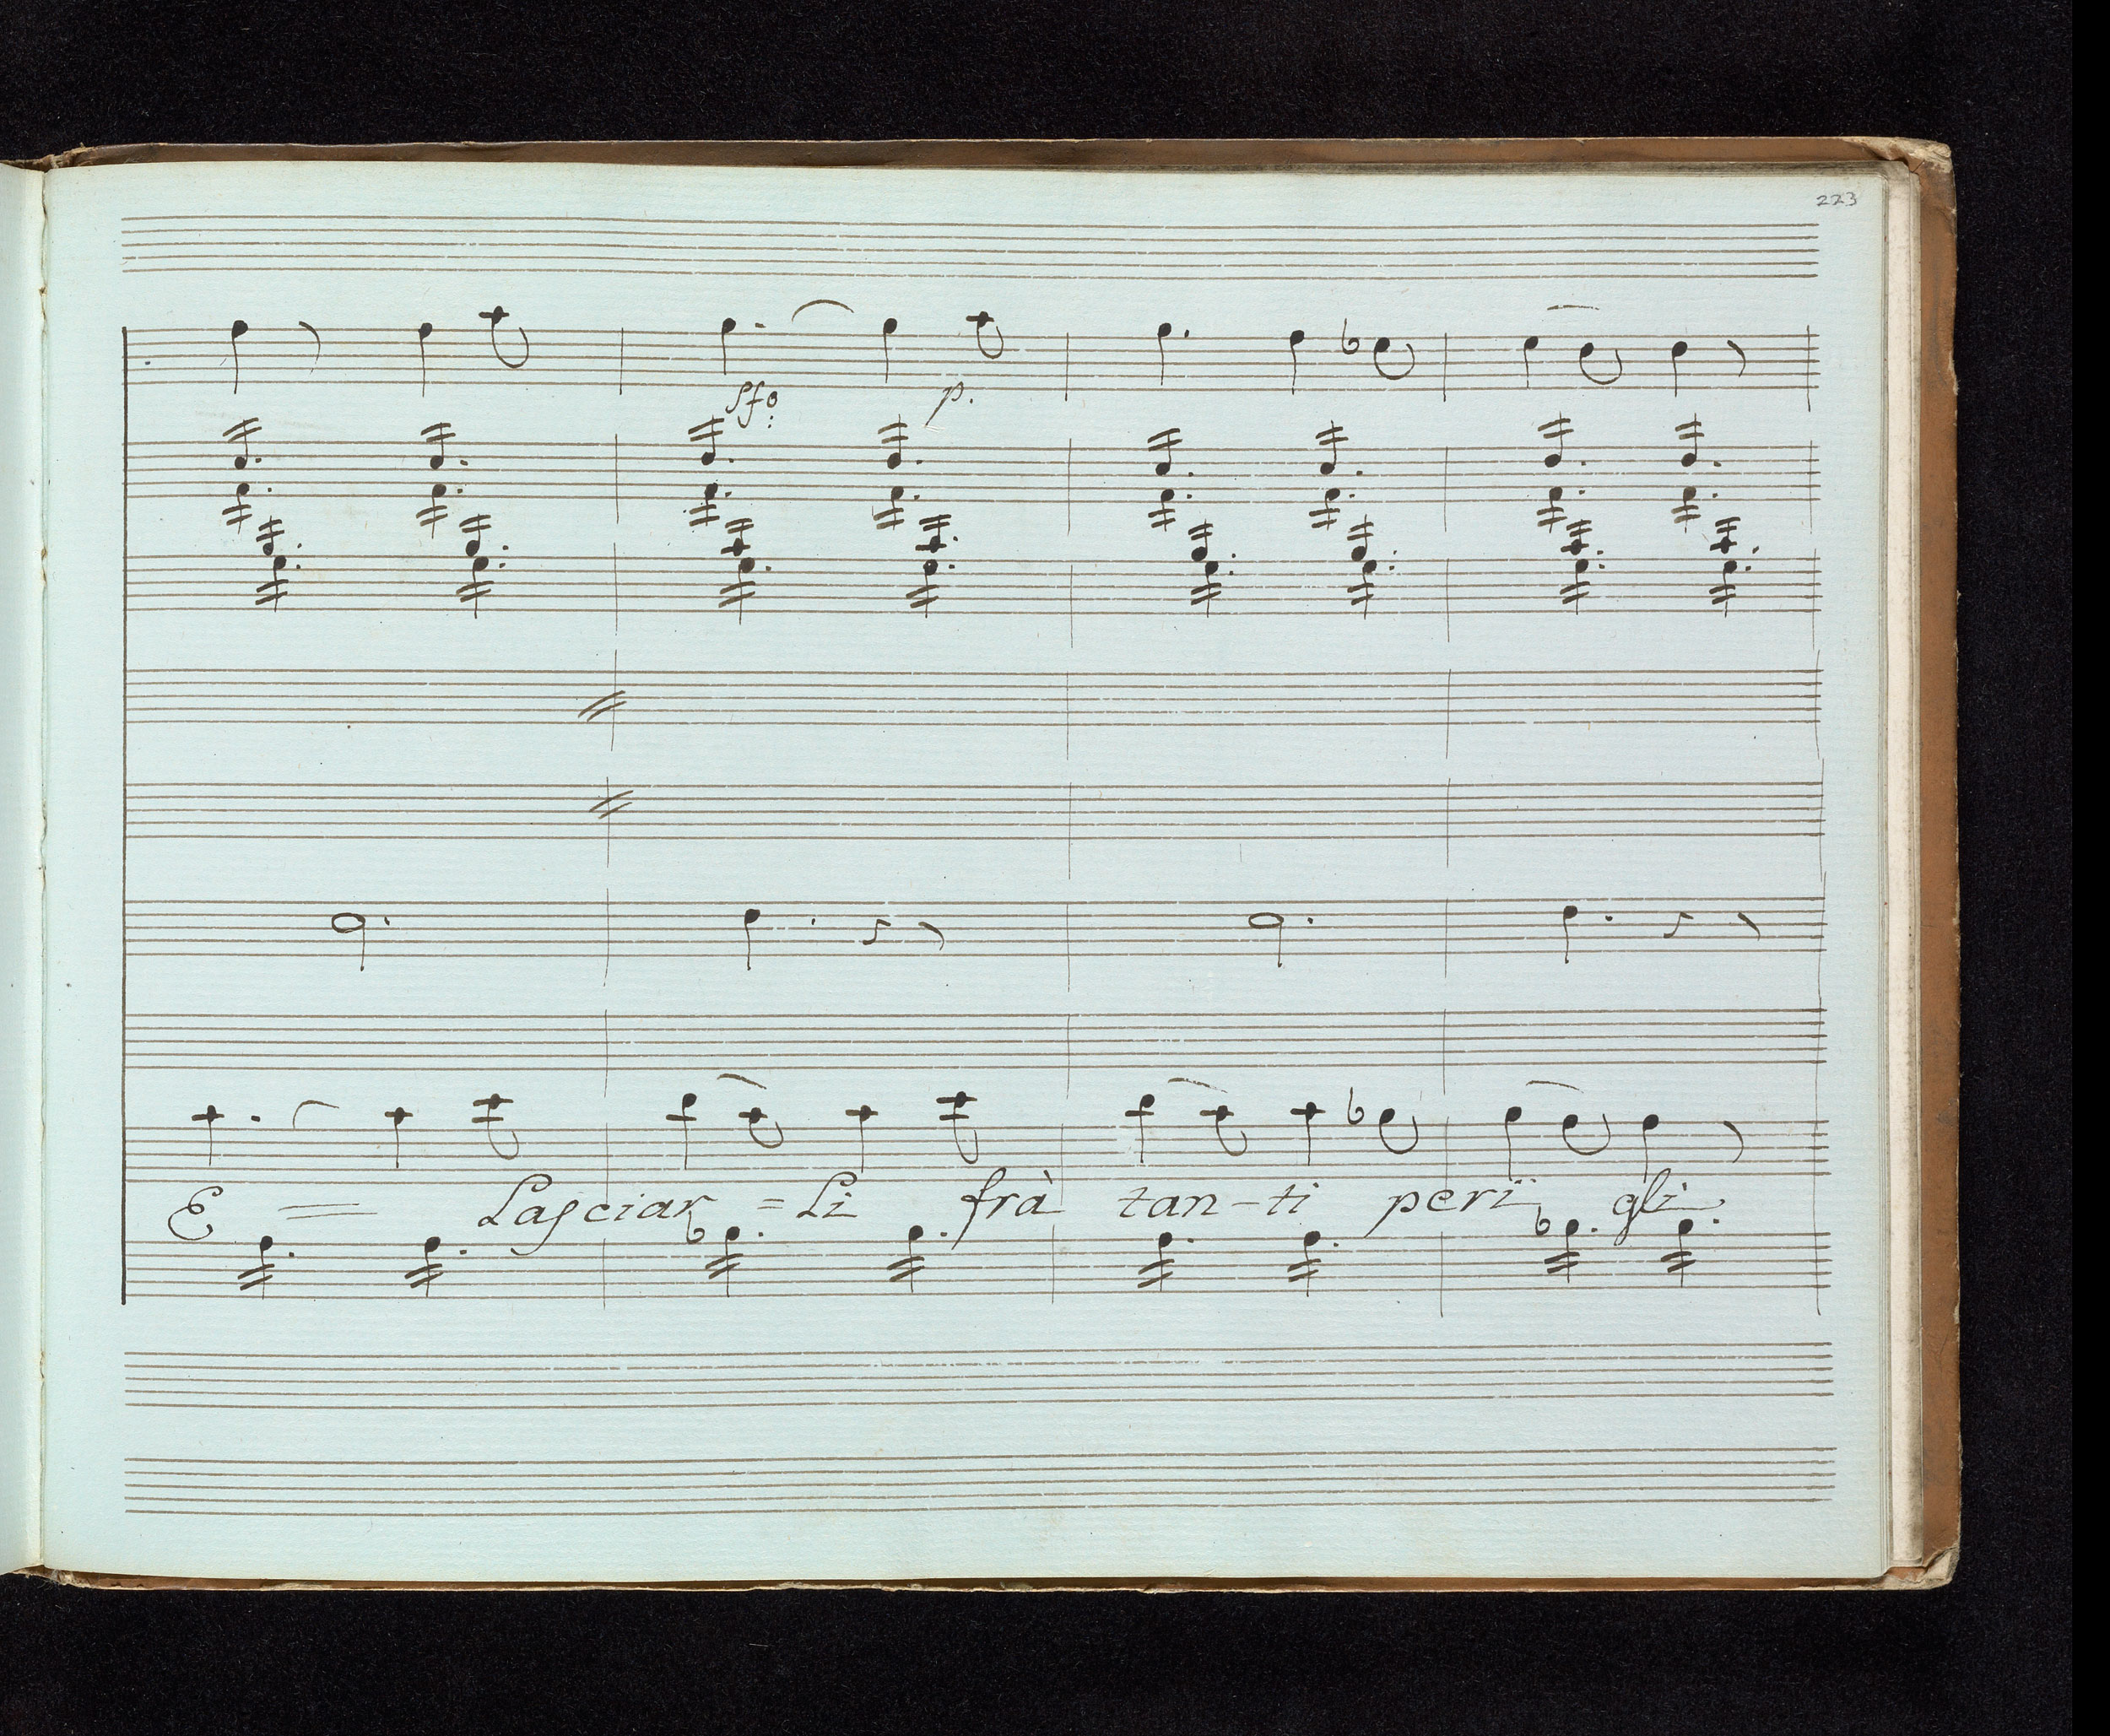 223
sfo: p.
E = Lasciar = Li frà tan-ti perï gli